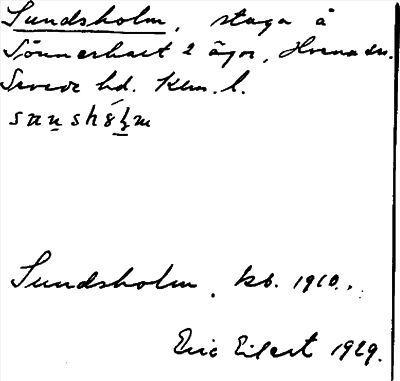 Sundsholm, stuga å
Sönnerhult 2 ägor, Hvena sn.
Sevede hd. Klm. l.
Sundsholm. kb. 1910.
Eric Eilert 1929.